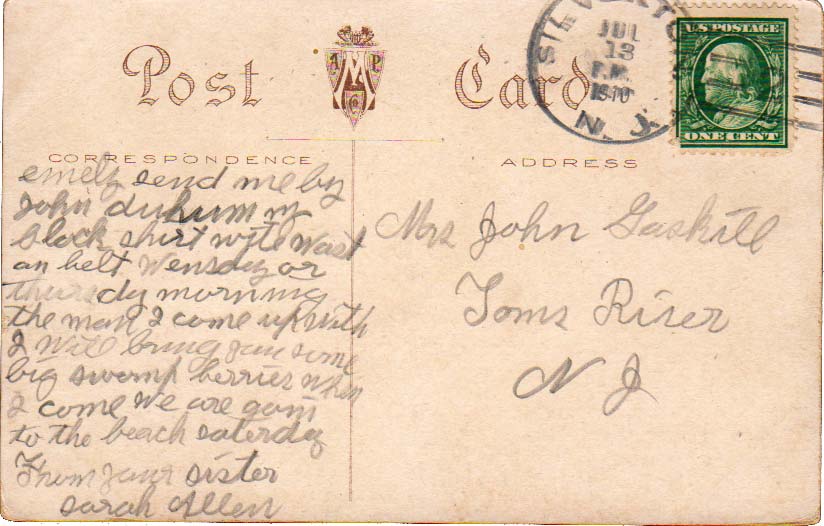 Post Card
SILVERTON
JUL
13
P.M.
1910
N. J.
U.S. POSTAGE
ONE CENT
A M P C
CORRESPONDENCE
ADDRESS
emely send me by
John duhum my
black shirt wite wast
an belt wensday or
thursdy morning
the man I come up with
I will bring you some
big swomp berries when
I come we are goni
to the beach saterday
From your sister
sarah Allen
Mrs John Gaskill
Toms River
N J